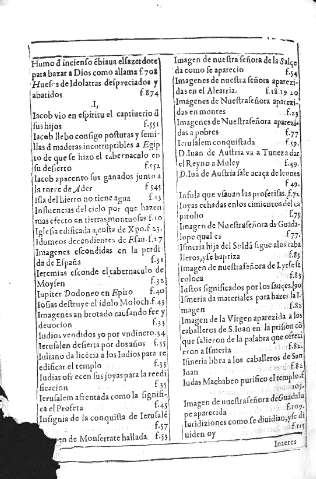 Humo d incienso ebiaua el sazerdote
para bazar a Dios como allama f.708
Huesos de Idolatras despreciados y
abatidos f.874
I,
Iacob vio en espiritu el captiuerio d
sus hijos f.551
Iacob llebo consigo posturas y semi-
llas d maderas incorruptibles a Egip
to de que se hizo el tabernaculo en
su desierto f.552
Iacob apacento sus ganados junto a
la torre de Ader f.545
Isla del hierro no tiene agua f.13
Influencias del cielo por que hazen
mas efecto en tierras montuosas f.10
Iglesia edificada a costa de Xpo. f.23
Idumeos decendientes de Esau f.17
Imagenes escondidas en la perdi
da de España f.51
Ieremias esconde el tabernaculo de
Moysen f.32
Iupiter Dodoneo en Epiro f.40
Iosias destruye el idolo Moloch f.43
Imagenes an brotado causando fee y
deuocion f.33
Iudios vendidos 30 por vn dinero f.54
Ierusalen desierta por dosaños f.55
Iuliano da licécia a los Iudios para re
edificar el templo f.35
Iudias ofrecen sus joyas para la reedi
ficacion f.35
Ierusalem afrentada como la signifi-
ca el Profeta f.45
Insignia de la conquista de Ierusalé
f.57
Imagen de Monserrate hallada f.55
Imagen de nuestra señora de la Salçe
da como se aparecio f.54
Imagenes de nuestra señora aparezi-
das en el Alcarria. f.18 19 20
Imagenes de Nuestra señora aparezi-
das en montes f.23
Imagenes de Nuestra señora aparezi-
das a pobres f.77
Ierusalem conquistada f.59.
D. Iuan de Austria va a Tunez a dar
el Reyno a Muley f.49.
D. Iuā de Austria sale a caça de leones
f.49.
Insula que vsauan las profetisas. f.71
Ioyas echadas en los cimientos del ca
pitolio f.75
Imagen de Nuestra señora da Guada-
lupe qual es f.77
Ismeria hija del Soldā sigue a los caba
lleros, y se baptiza f.85
Imagen de nuestra señora de Lyesse se
coloca f.83
Iustos significados por los sauçes. f.90
Ismeria da materiales para hazer la I-
magen f.82
Imagen de la Virgen aparezida a los
caballeros de S. Iuan en la prision cō
que salieron de la palabra que ofreci
eron a Ismeria f.82.
Ismeria libra a los caballeros de San
Iuan f.82.
Iudas Machabeo purifico el templo. f.
Imagen de nuestra señora de Guadalu
pe aparecida f.109.
Iuridiziones como se diuidian, y se di
uiden oy f.115
Interes